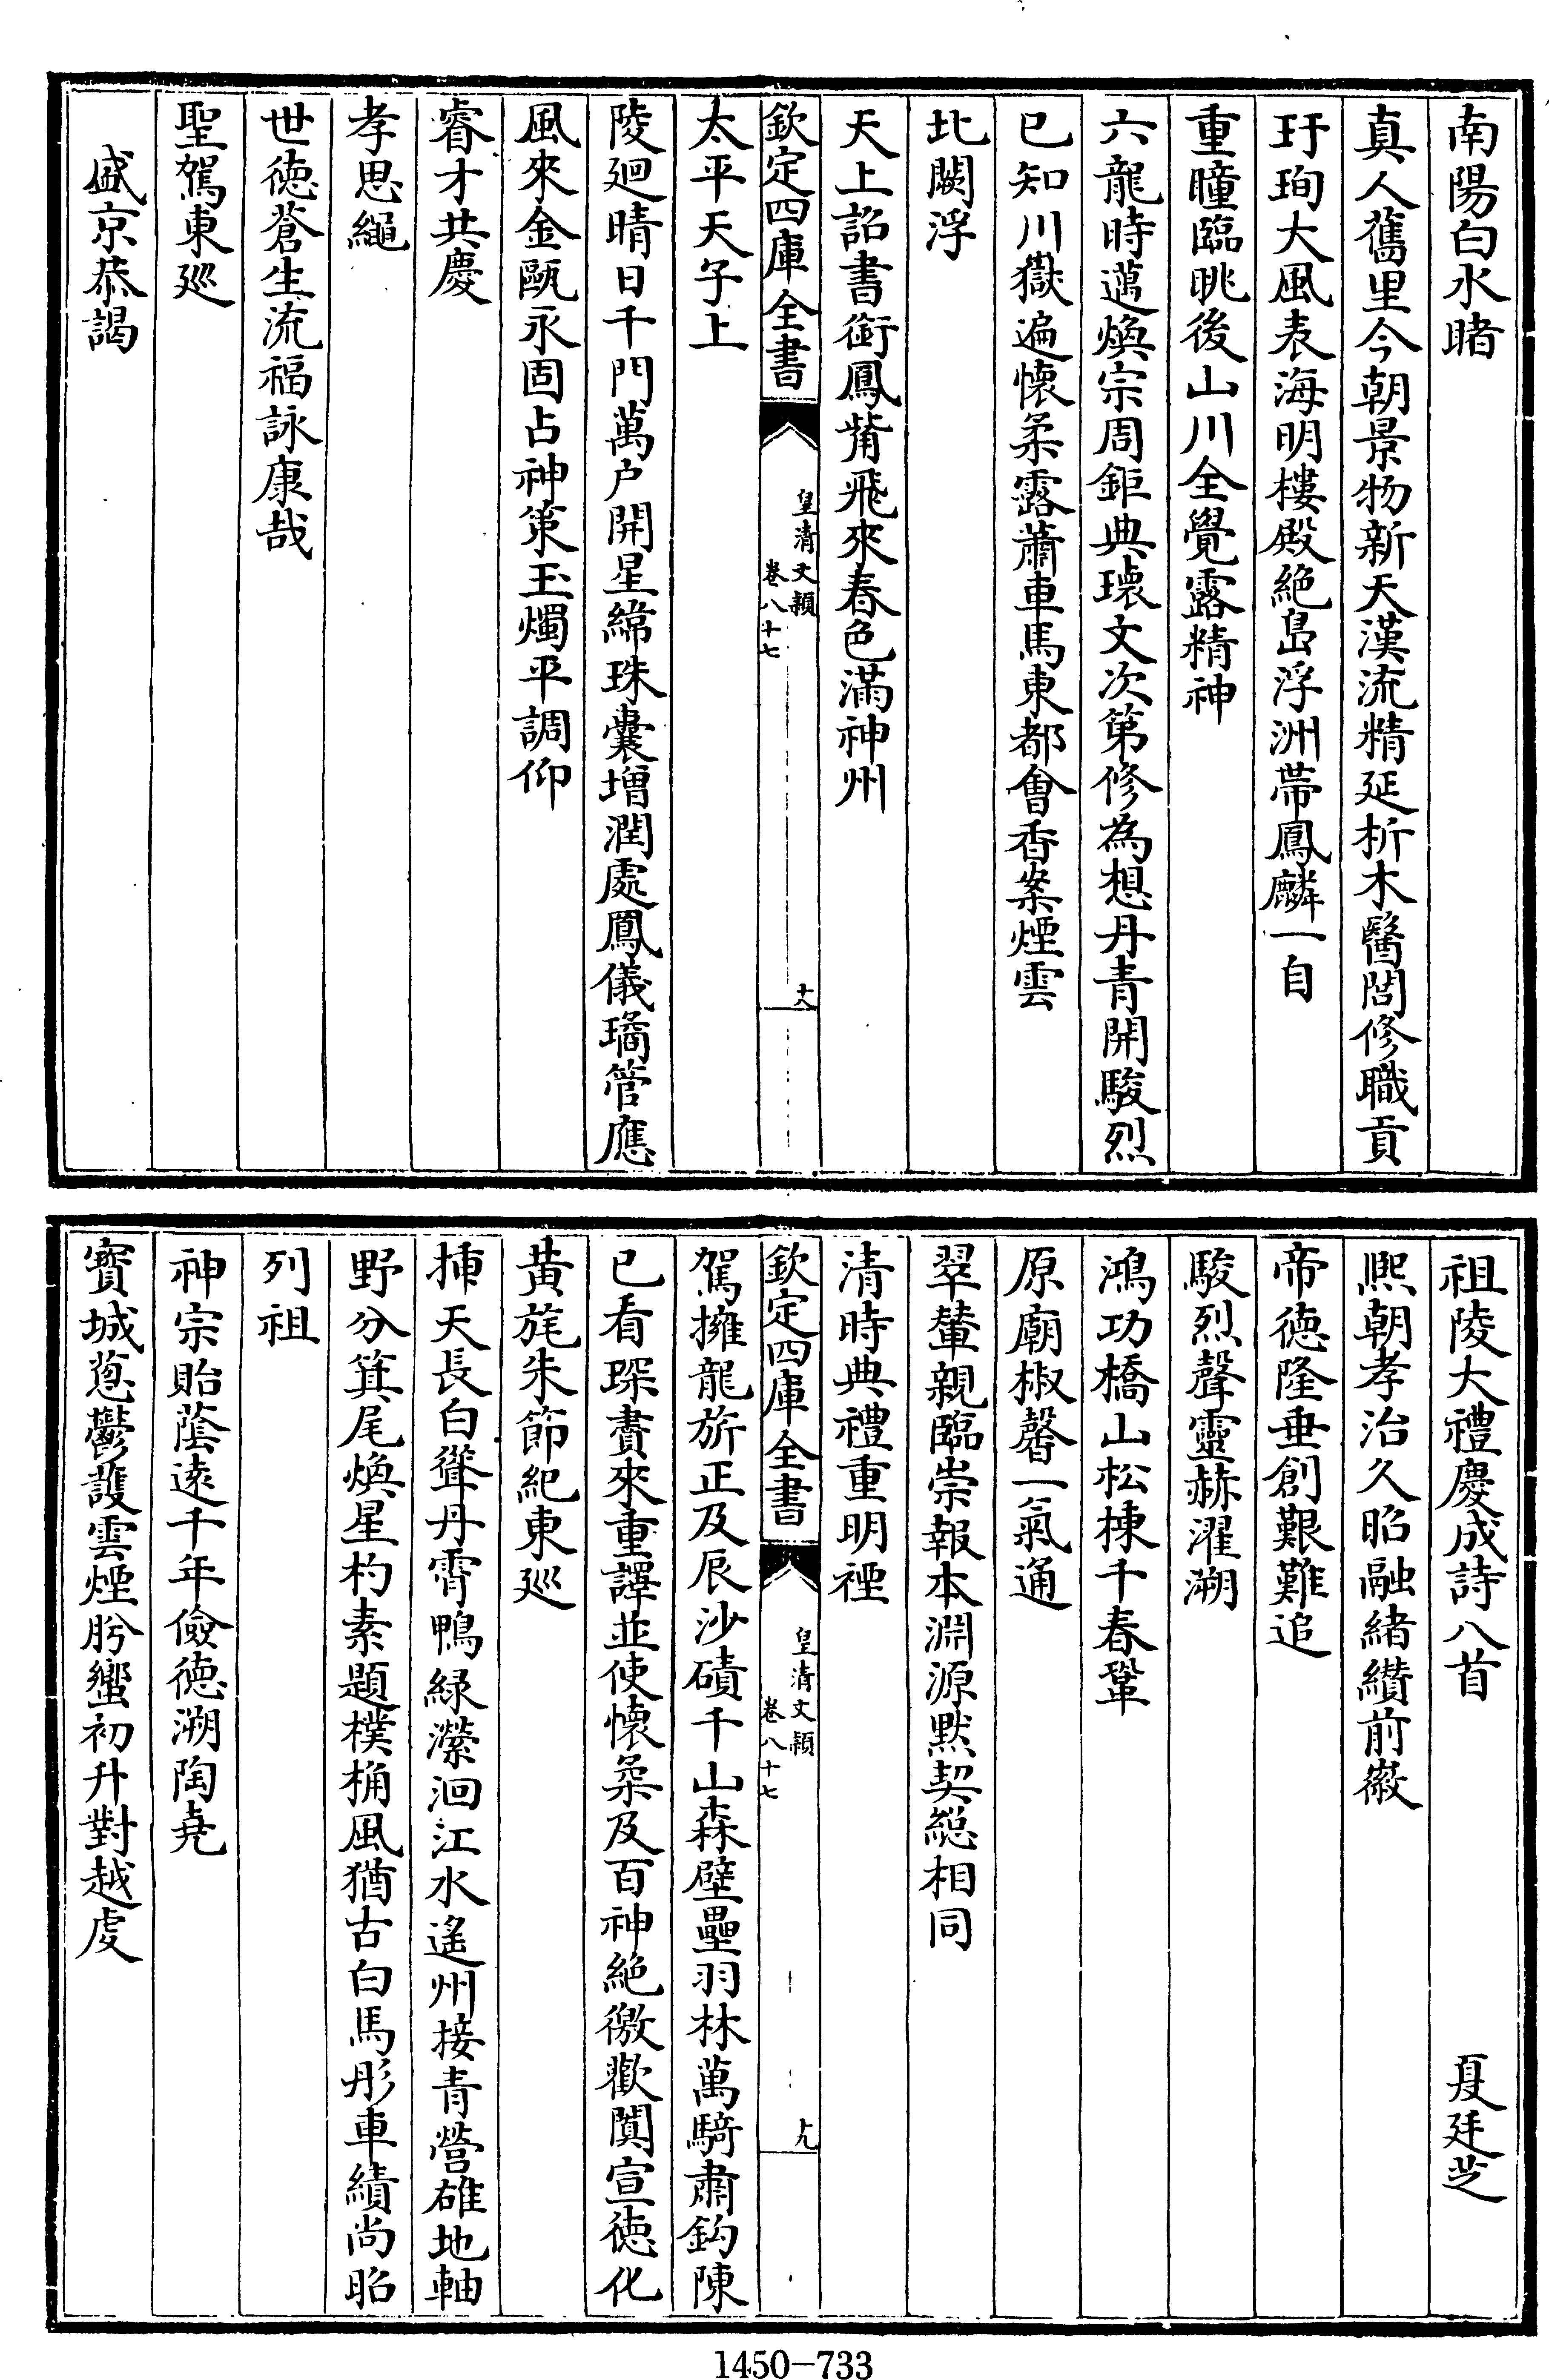 南陽白水睹
真人舊里今朝景物新天漢流精延析木醫閭修職貢
玗珣大風表海明樓殿絶島浮洲帶鳳麟一自
重瞳臨眺後山川全覺露精神
六龍時邁煥宗周鉅典瓌文次第修為想丹青開駿烈
已知川嶽遍懷柔露蕭車馬東都會香案煙雲
北闕浮
天上詔書銜鳳觜飛來春色滿神州
欽定四庫全書
皇清文穎
卷八十七
十八
太平天子上
陵廻晴日千門萬户開星緯珠囊增潤處鳳儀璚管應
風來金甌永固占神策玉燭平調仰
睿才共慶
孝思繩
世德蒼生流福詠康哉
聖駕東廵
盛京恭謁
祖陵大禮慶成詩八首
夏廷芝
熙朝孝治久昭融緒纘前徽
帝德隆垂創艱難追
駿烈聲靈赫濯溯
鴻功橋山松棟千春鞏
原廟椒馨一氣通
翠輦親臨崇報本淵源默契總相同
清時典禮重明禋
欽定四庫全書
皇清文穎
卷八十七
十九
駕擁龍旂正及辰沙磧千山森壁壘羽林萬騎肅鈎陳
已看琛賮來重譯並使懷柔及百神絶徼歡闐宣德化
黄旄朱節紀東廵
揷天長白聳丹霄鴨緑瀠洄江水遙州接青營雄地軸
野分箕尾煥星杓素題樸桷風猶古白馬彤車績尚昭
列祖
神宗貽蔭遠千年儉德溯陶堯
寳城葱鬱護雲煙肹蠁初升對越虔
1450-733